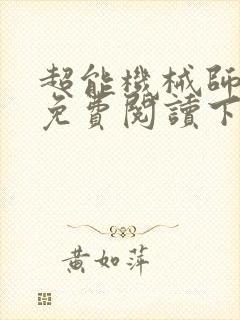 超能機械師
免費閱讀下
黃如萍